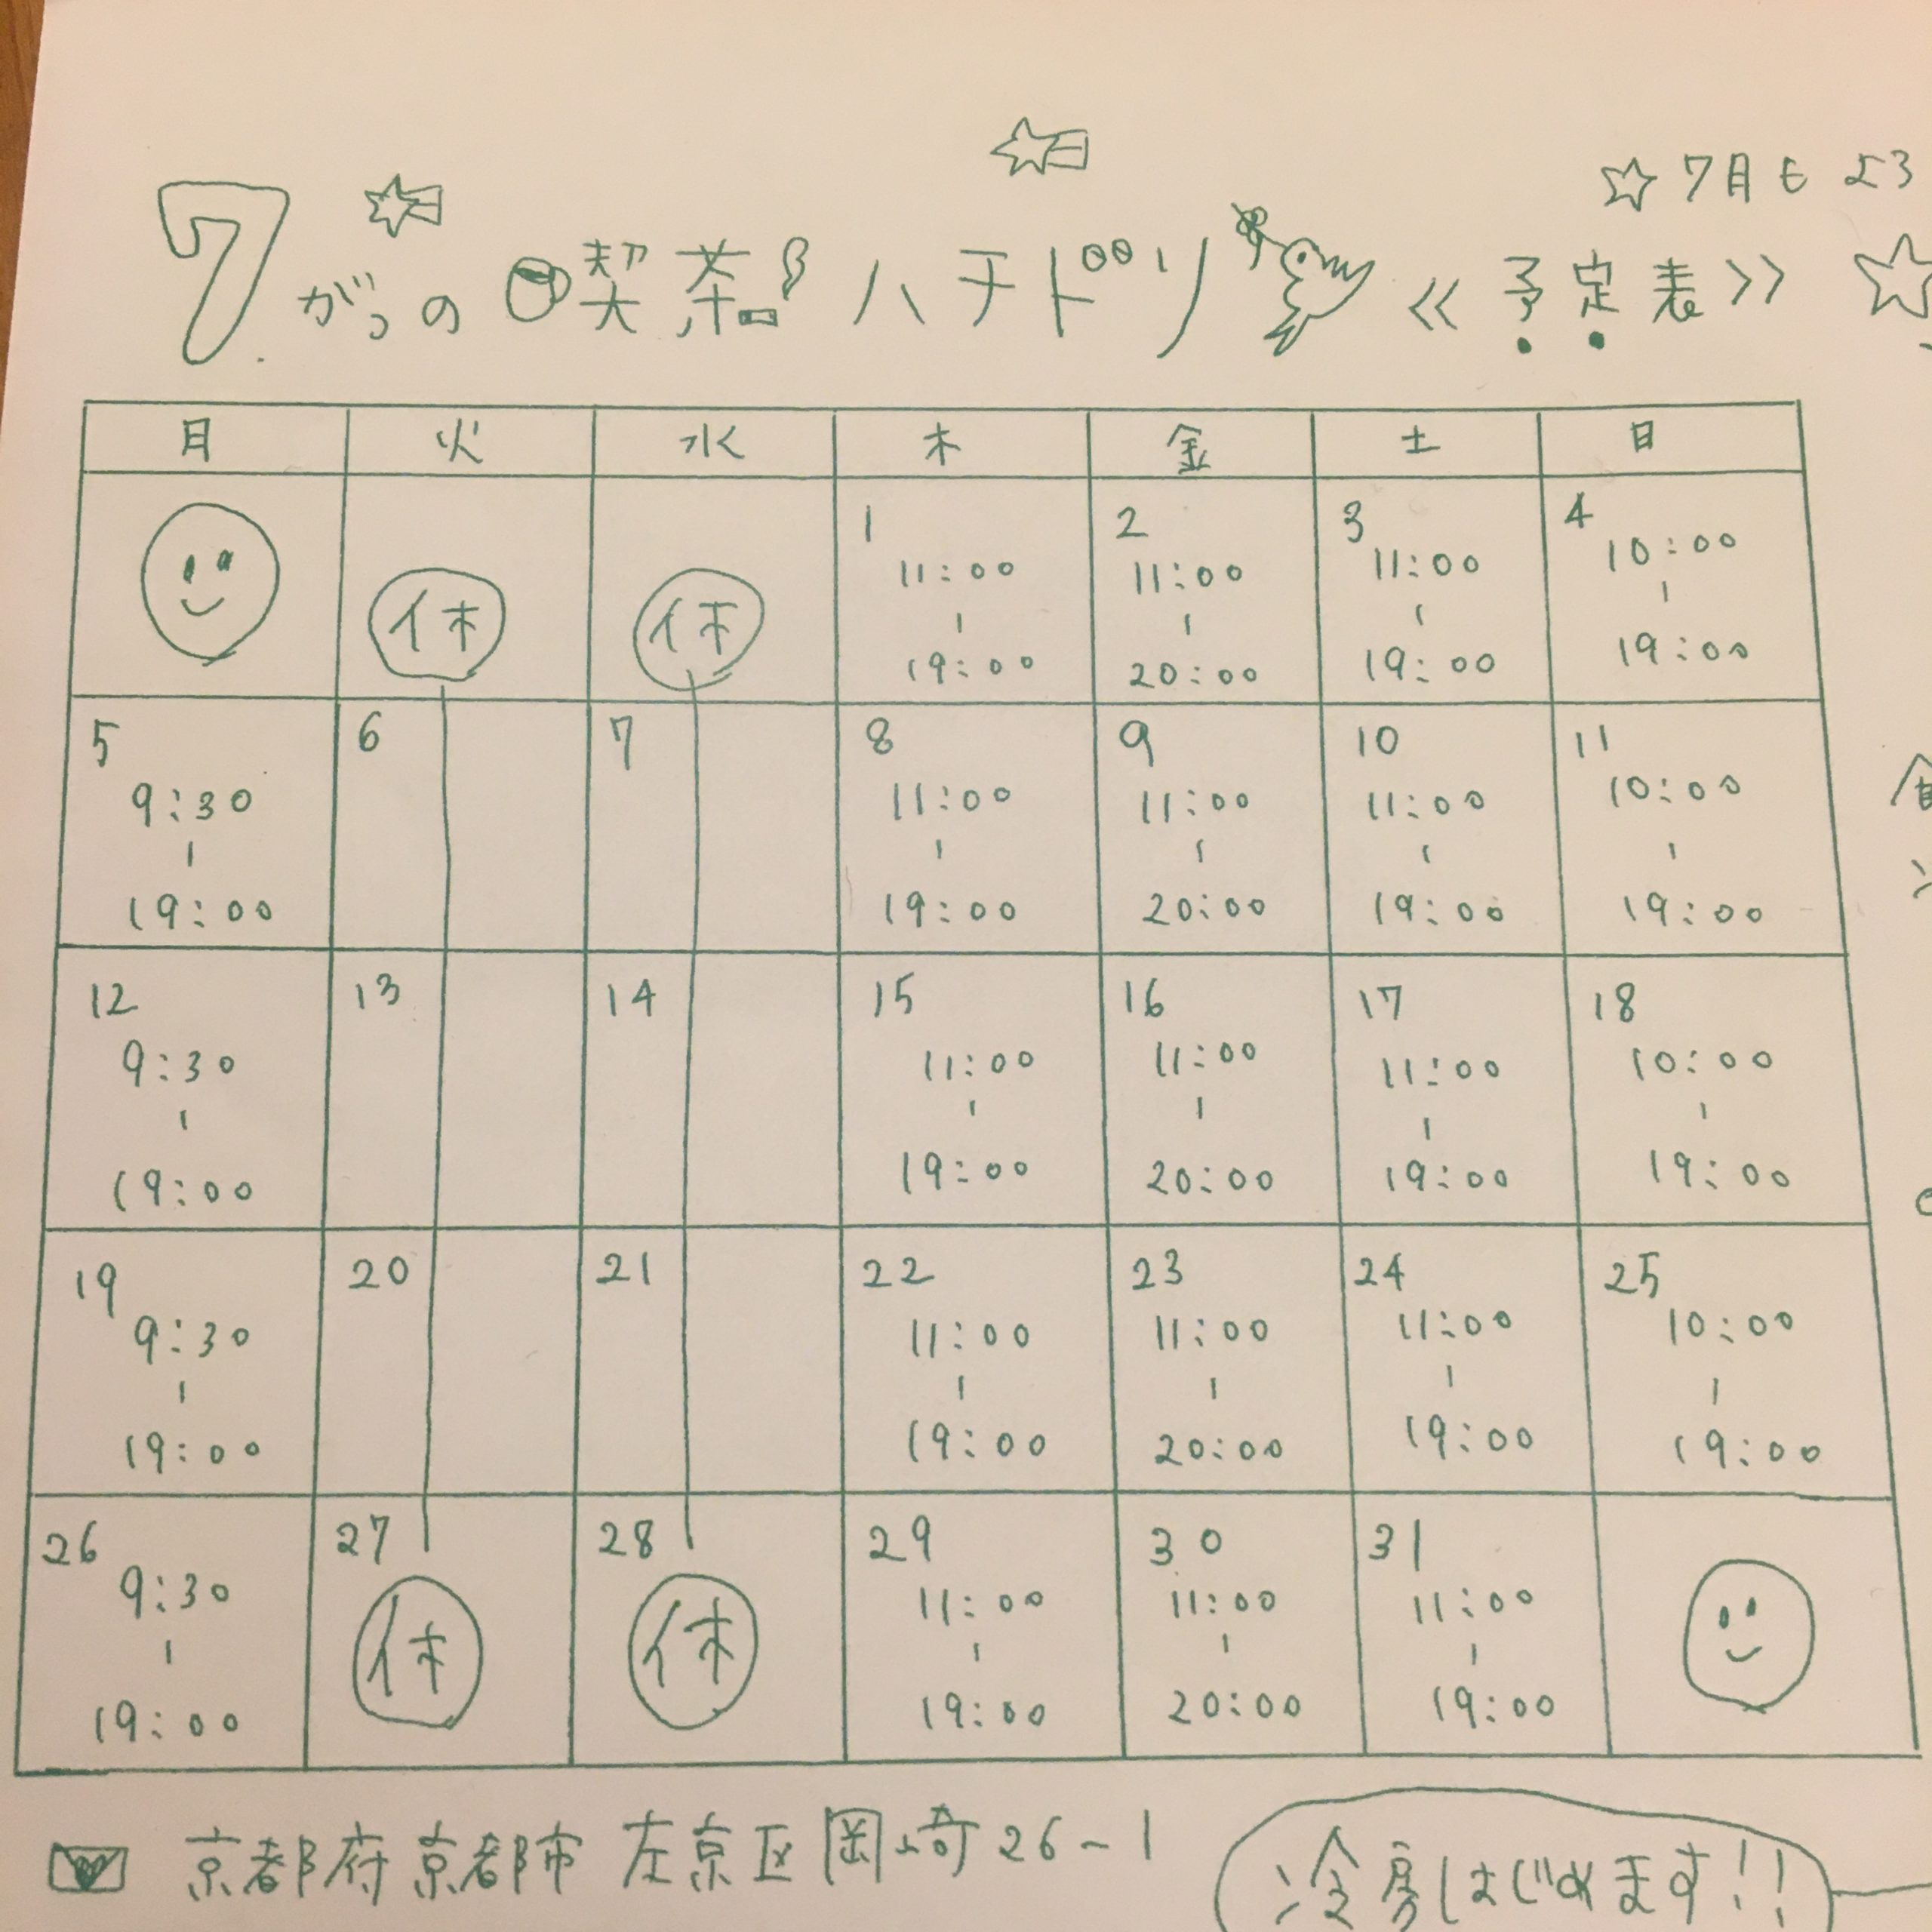 ☆7月も よろ
7がつの 喫茶 ハチドリ 《予定表》
月 火 水 木 金 土 日
休 休
1 2 3 4
11:00 11:00 11:00 10:00
19:00 20:00 19:00 19:00
5 6 7 8 9 10 11
9:30 11:00 11:00 11:00 10:00
19:00 19:00 20:00 19:00 19:00
12 13 14 15 16 17 18
9:30 11:00 11:00 11:00 10:00
19:00 19:00 20:00 19:00 19:00
19 20 21 22 23 24 25
9:30 11:00 11:00 11:00 10:00
19:00 19:00 20:00 19:00 19:00
26 27 28 29 30 31
9:30 11:00 11:00 11:00
休 休
19:00 19:00 20:00 19:00
京都府京都市 左京区岡崎26-1
冷房はじめます!!